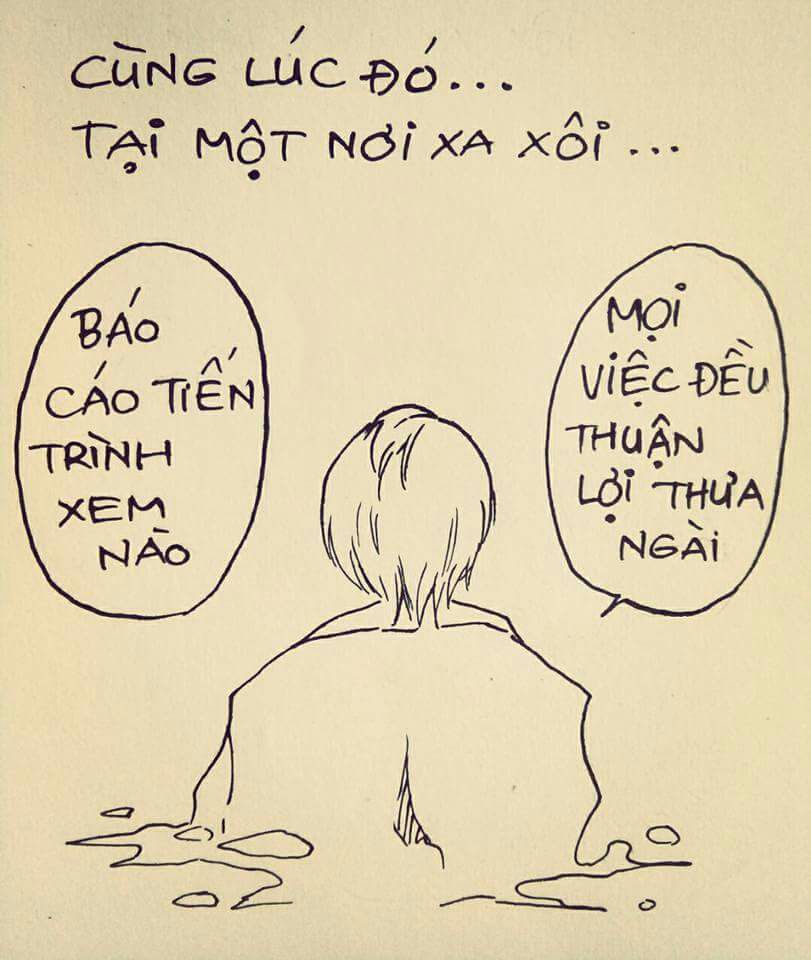 CÙNG LÚC ĐÓ...
TẠI MỘT NƠI XA XÔI...
BÁO
CÁO TIẾN
TRÌNH
XEM
NÀO
MỌI
VIỆC ĐỀU
THUẬN
LỢI THƯA
NGÀI